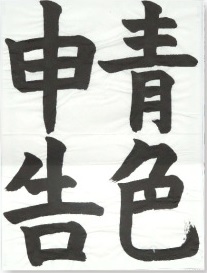 青色
申告